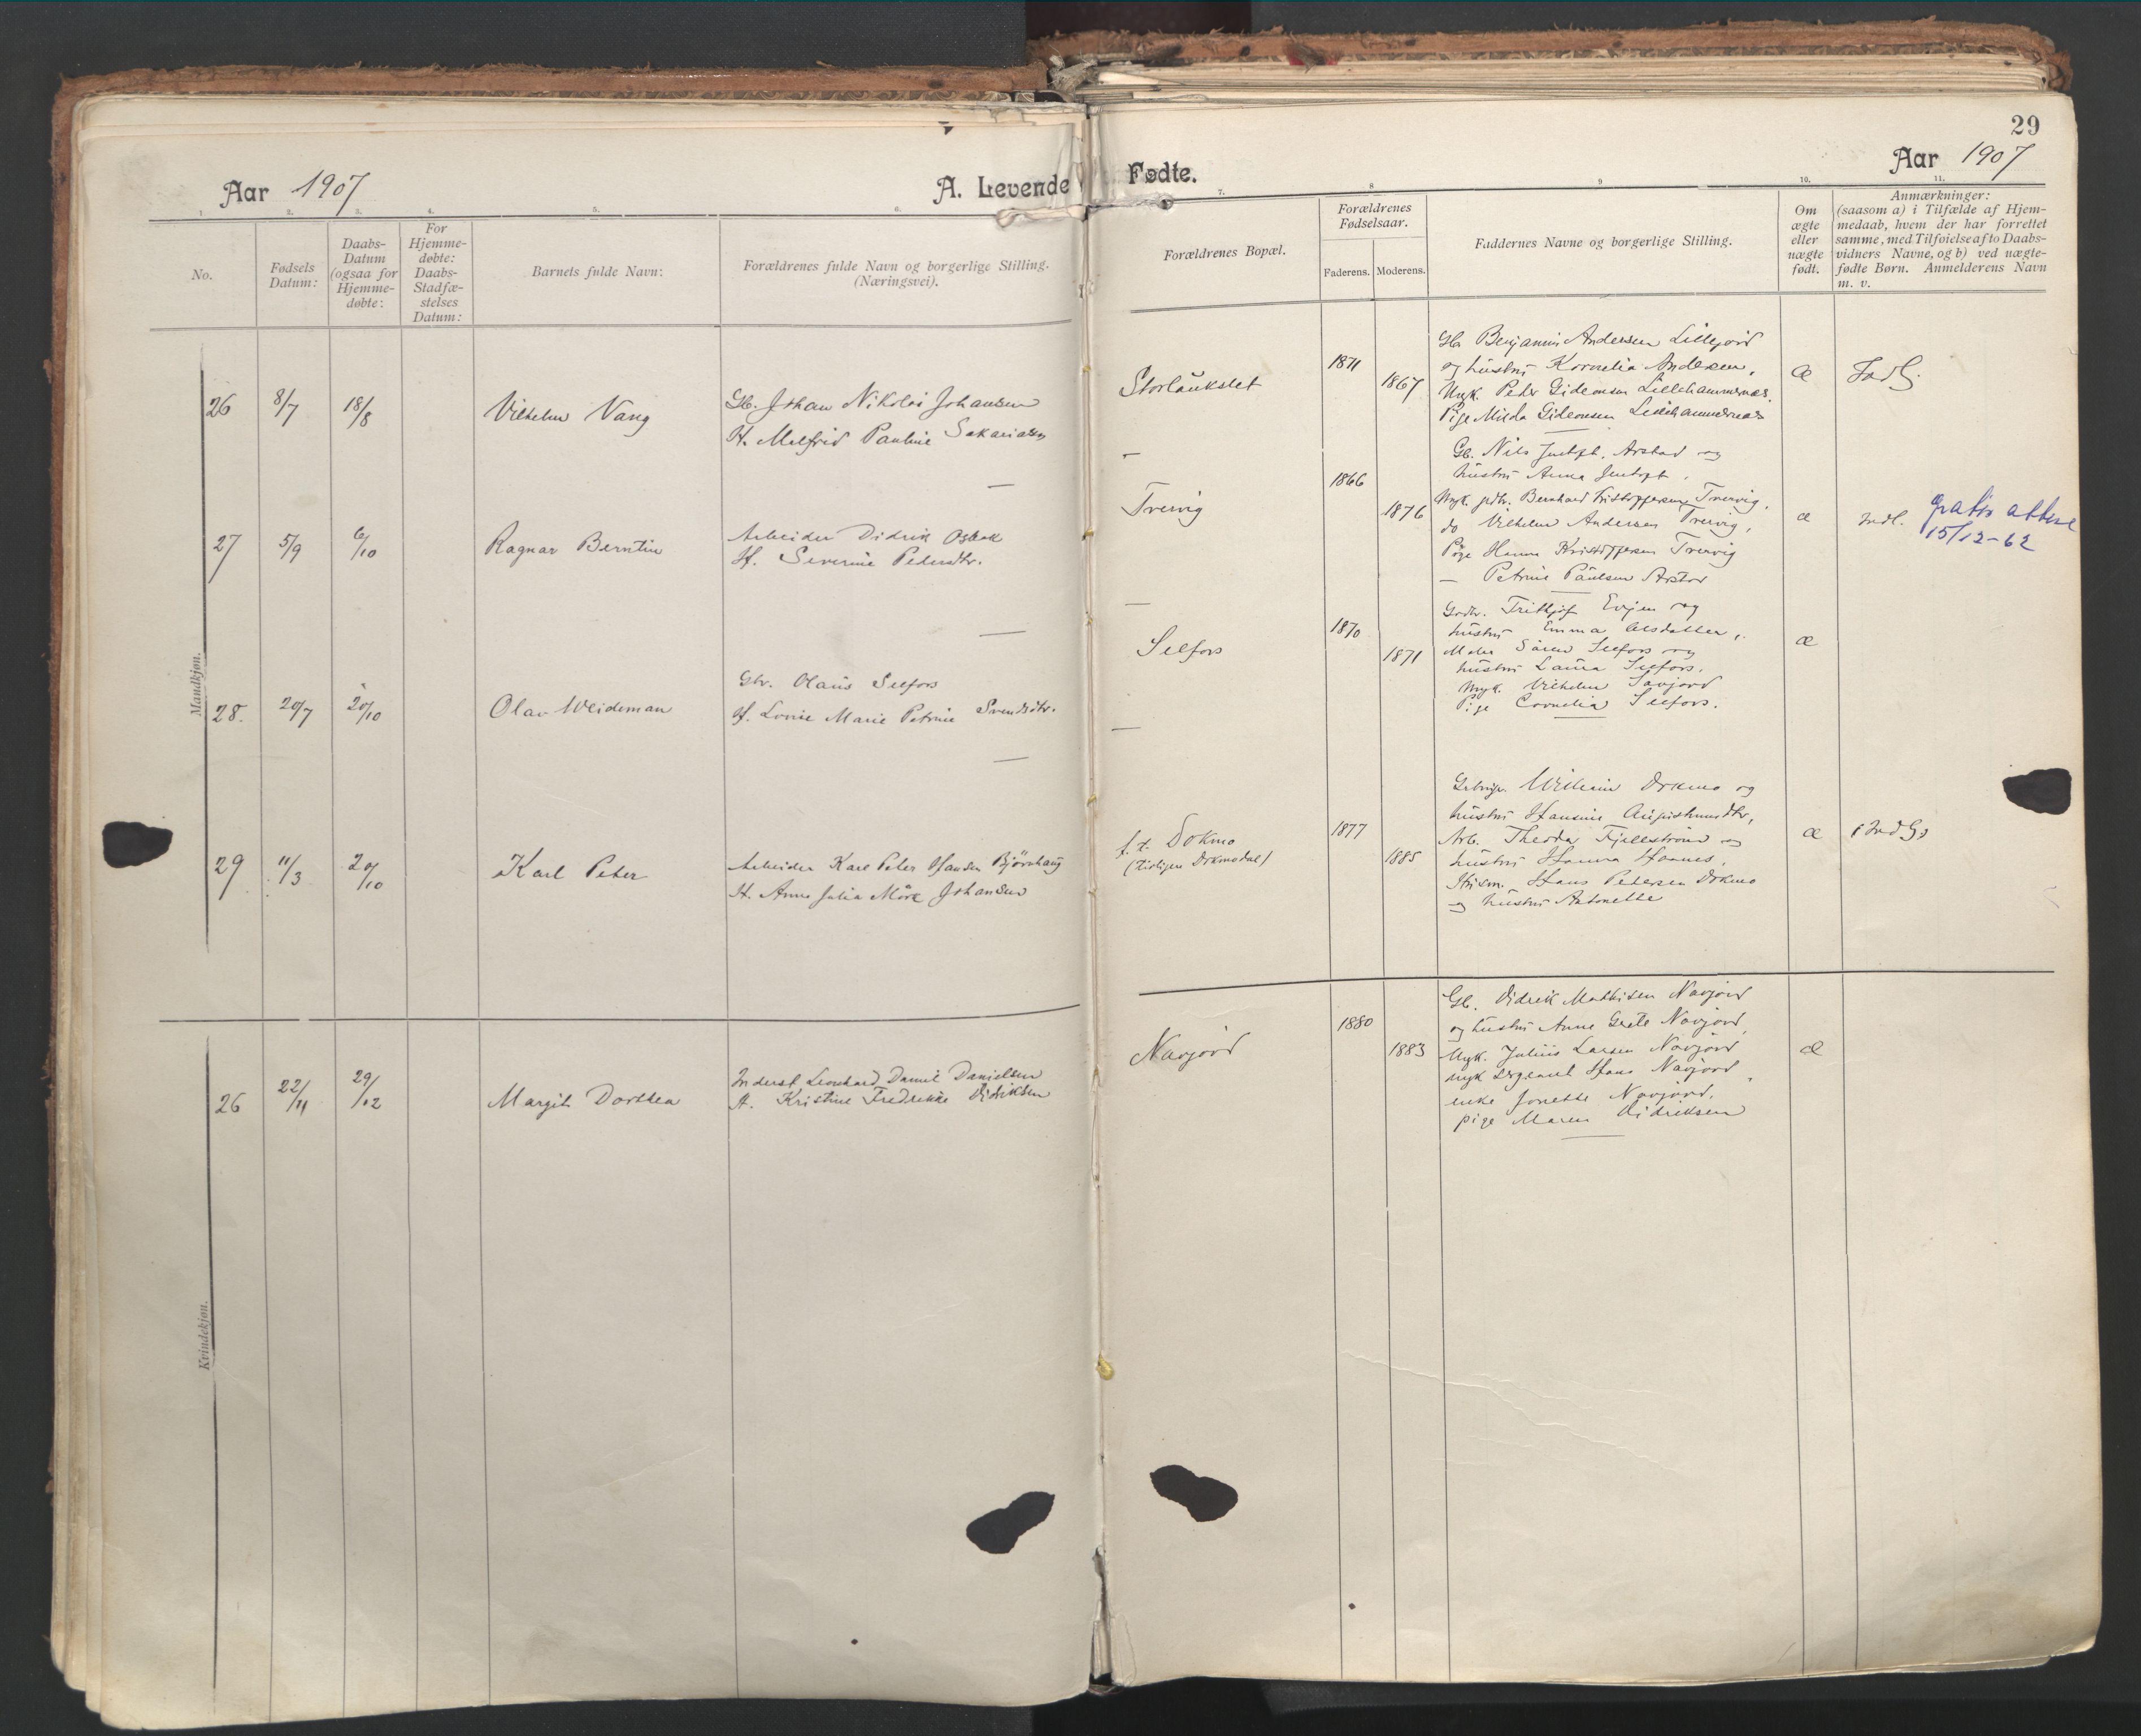 29
Aar 1907
A. Levende Fødte.
Aar 1907
1. 2. 3. 4. 5. 6. 7. 8 9 10. 11.
No.
Fødsels Datum:
Daabs-
Datum
(ogsaa for
Hjemme-
døbte:
For
Hjemme-
døbte:
Daabs-
Stadfæ-
stelses
Datum:
Barnets fulde Navn:
Forældrenes fulde Navn og borgerlige Stilling.
(Næringsvei).
Forældrenes Bopæl.
Forældrenes
Fødselsaar.
Faderens. Moderens.
Faddernes Navne og borgerlige Stilling.
Om
ægte
eller
uægte
født.
Anmærkninger:
(saasom a) i Tilfælde af Hjem-
medaab, hvem der har forrettet
samme, med Tilføielse af to Daabs-
vidners Navne, og b) ved uægte-
fødte Børn. Anmelderens Navn
m. v.
Mandkjøn.
26 8/7 18/8 Vilhelm Vang
Gb. Johan Nikolai Johansen
H. Melfrid Pauline Sakariasen
1871 1867
Gb. Benjamin Andersen Lillejord
og hustru Kornelia Andersen,
Ungk. Peder Gideonsen Lillehammernes.
Pige Milda Gideonsen Lillehammernes
Æ
27 5/9 6/10 Ragnar Berntin
Arbeider Didrik
H. Severine Pedersdtr.
Trervig
1866 1876
Gb. Nils Arstad og
hustru Anna
Ungk. Bernhard Kristoffersen Trervig,
do Vilhelm Andersen Trervig,
Pige Hanna Kristoffersen Trervig
— Petrine Paulsen Arstad
æ Indl. gratis attest
15/12-62
28. 20/7 20/10 Olav Weideman
Gbr. Olaus Selfors
H. Lovise Marie Petrine Svendsdtr.
Selfors
1870 1871
Grdbr. Frithjof Evjen og
hustru Emma Olsdatter,
Maler Søren Selfors og
hustru Laura Selfors.
Ungk. Vilhelm
Pige Cornelia Selfors.
æ
29 11/3 20/10 Karl Peter
Arbeider Karl Peter Hansen Bjørnhaug
H. Anna Julia Möre Johansen
f. t. Dokmo
(tidligere Dokmodal)
1877 1885
Vilhelm Dokmo og
hustru Hansine
Arb. Theodor Fjellström og
hustru Hanna Hannes.
Hans Petersen Dokmo
og hustru Antonette
æ
Kvindekjøn.
26 22/11 29/12 Margit Dorthea
Inderst Leonhard Daniel Danielsen
H. Kristine Fredrikke Didriksen
Navjord
1880 1883
Gb. Didrik Mathisen Navjord
og hustru Anne Grete Navjord,
Ungk. Julius Larsen Navjord
ungk sergeant Hans Navjord,
enke Jonette Navjord,
pige Maren Didriksen
æ